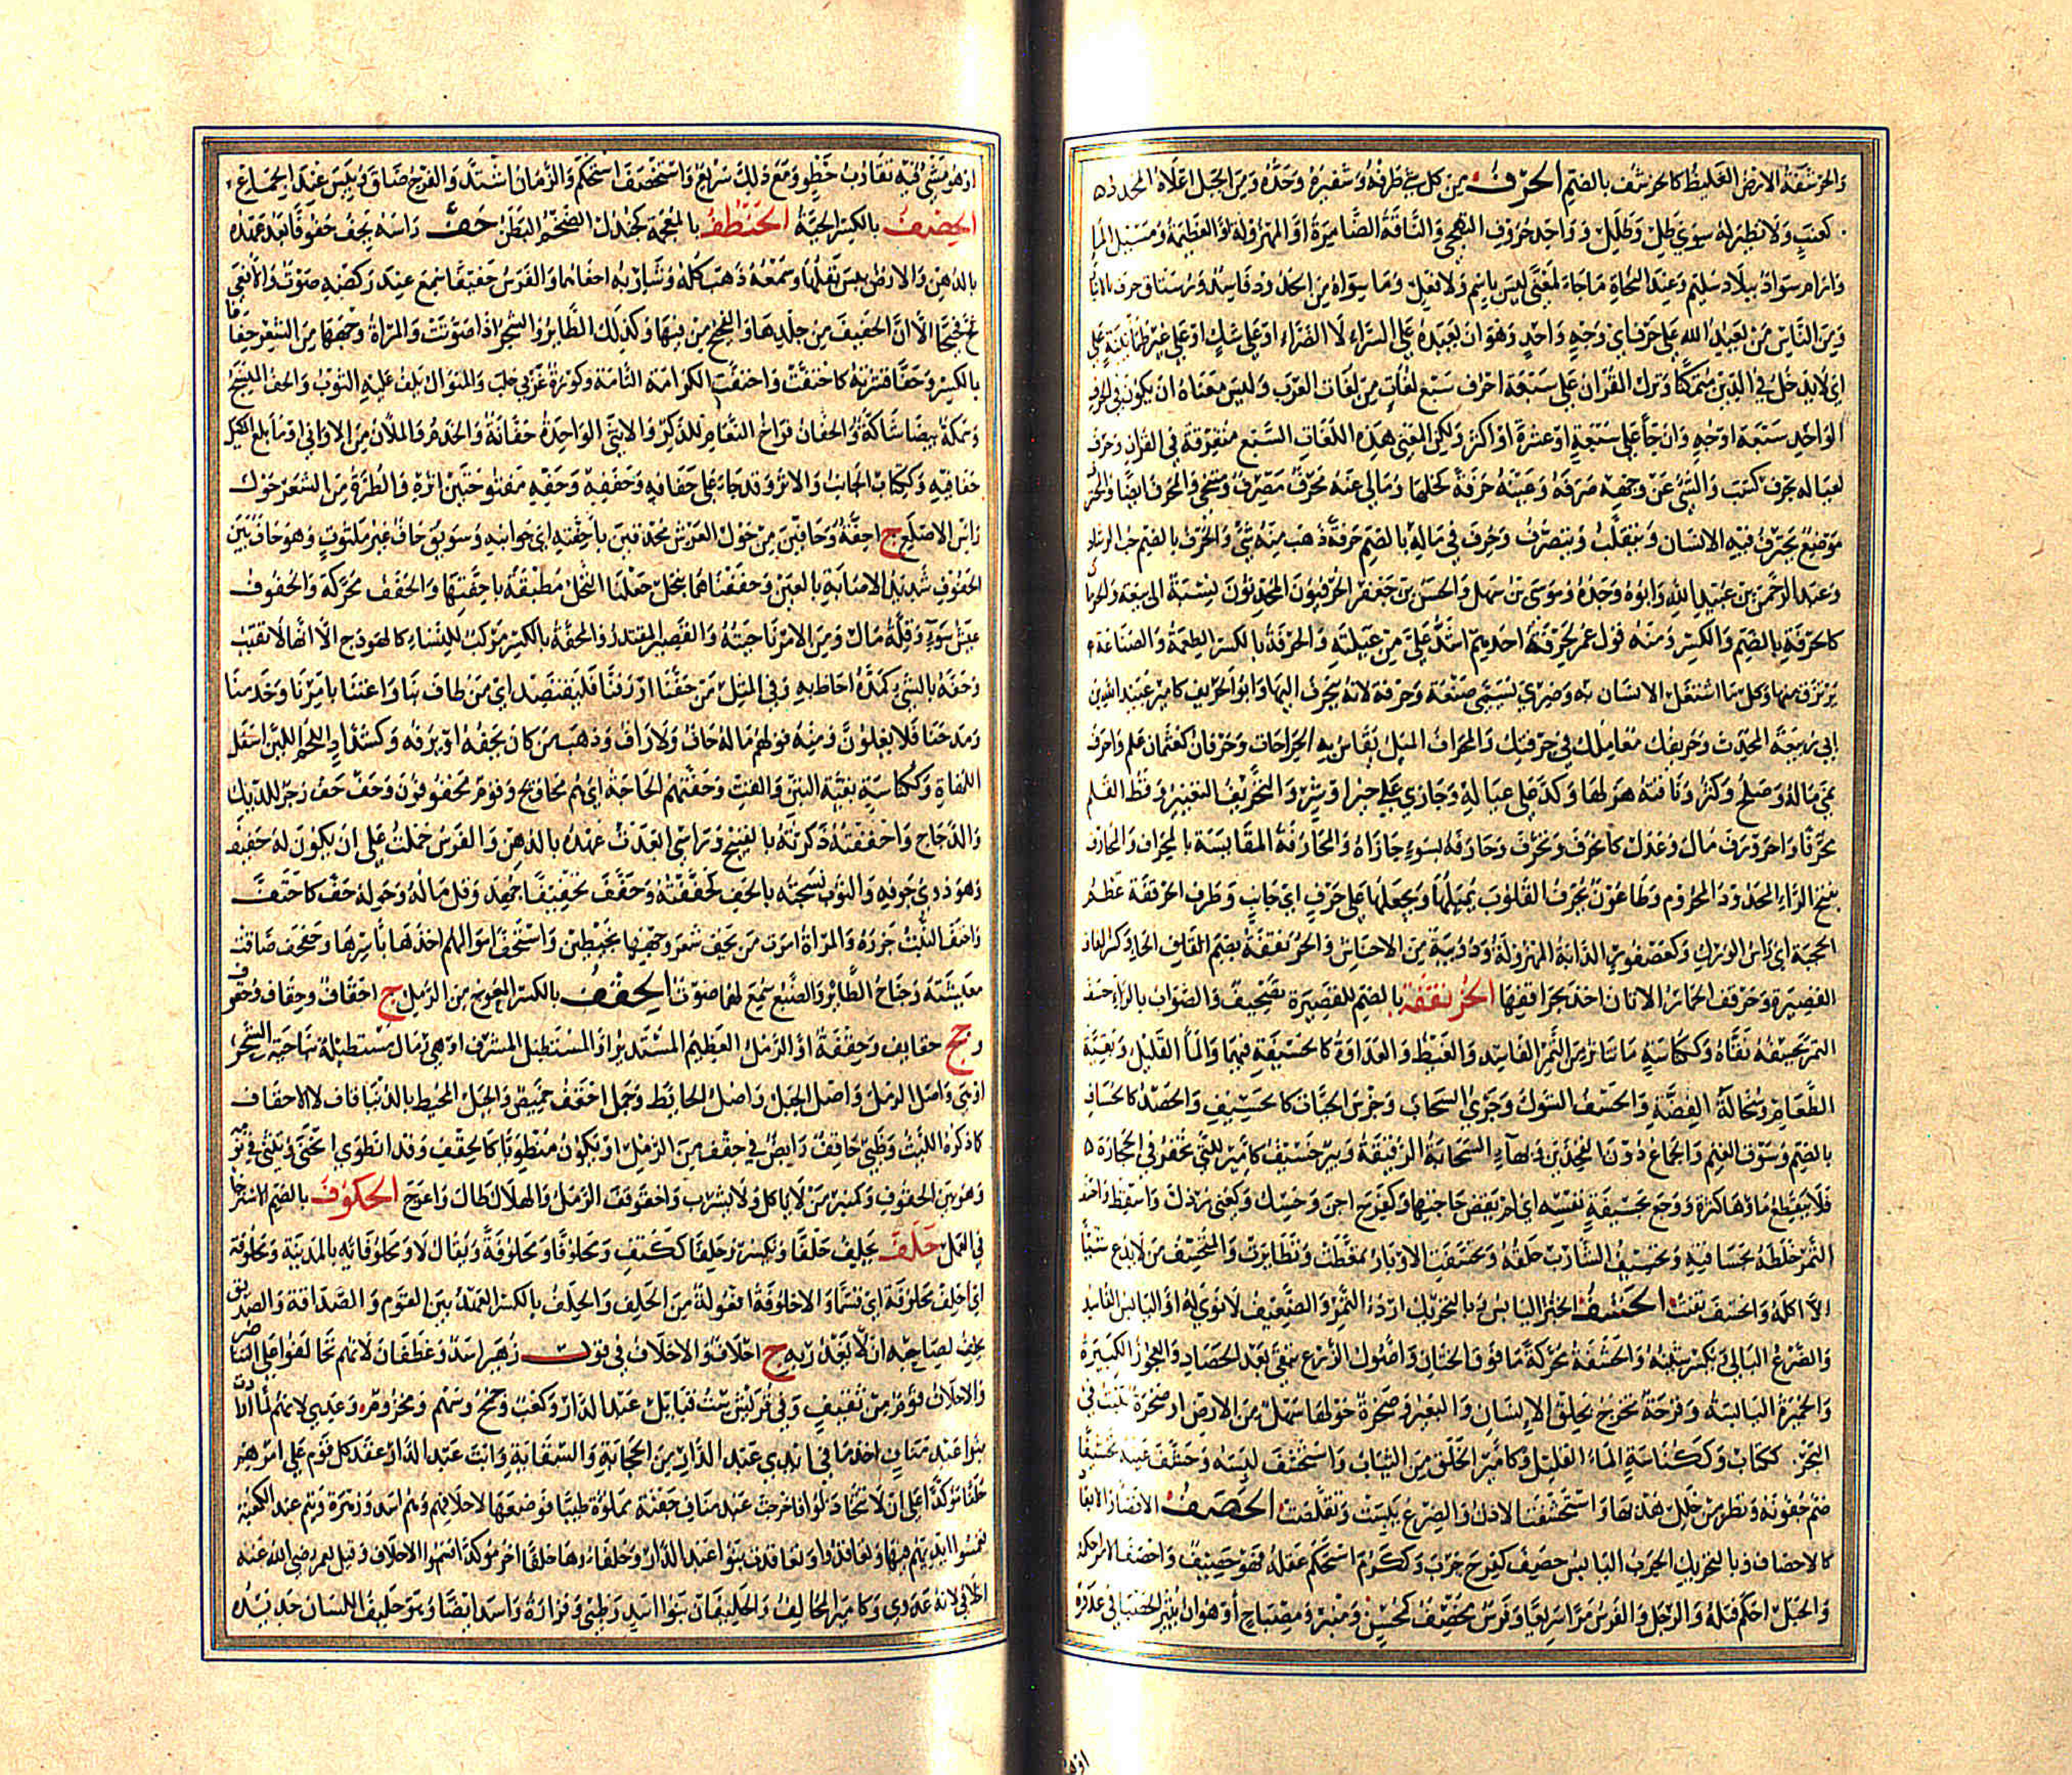 والحرشفة الارض الغليظة كالحرشف بالضم الحرف من كل شئ طرفه وشفيره وحده ومن الجبل اعلاه المحدد ج
كعنب ولا نظير له سوى طل وطلل وواحد حروف التهجي والناقة الضامرة او المهزولة او العظيمة ومسيل الماء
وارام سود ببلاد سليم وعند النحاة ما جاء لمعنى ليس باسم ولا فعل وما سواه من الحدود فاسد ورستاق حرف بالانبار
ومن الناس من يعبد الله على حرف اي وجه واحد وهو ان يعبده على السراء لا الضراء او على شك او على غير طمانينة على
اي لا يدخل في الدين متمكنا ونزل القران على سبعة احرف سبع لغات من لغات العرب وليس معناه ان يكون في الحرف
الواحد سبعة اوجه وان جأ على سبعة او عشرة او اكثر ولكن المعنى هذه اللغات السبع متفرقة في القران وحرف
لعياله يحرف كسب والشئ عن وجهه صرفه وعينه حرفة كحلها ومالي عنه محرف مصرف ومتنحى والمحرف ايضا والمحترف
موضع يحترف فيه الانسان ويتقلب ويتصرف وحرف في ماله بالضم حرفة ذهب منه شئ والحرف بالضم حب الرشاد
وعبد الرحمن بن عبيد الله وابوه وجده وموسى بن سهل والحسن بن جعفر الحرفيون المحدثون نسبة الى بيعه والحرمان
كالحرفة بالضم والكسر ومنه قول عمر لحرفة احدهم اشد علي من عيلته والحرفة بالكسر الطعمة والصناعة
يرتزق منها وكل ما اشتغل الانسان به وضري يسمى صنعة وحرفة لانه ينحرف اليها وابو الحريف كامير عبيد الله بن
ابي ربيعة المحدث وحريفك معاملك في حرفتك والمحراف الميل يقاس به الجراحات وحرفان كعثمان علم واحرف
نمى ماله وصلح وكثر وناقته هزلها وكد على عياله وجازى على خير او شر والتحريف التغيير وقط القلم
محرفا واحرورف مال وعدل كانحرف وتحرف وحارفه بسوء جازاه والمحارفة المقايسة بالمحراف والمحارف
بفتح الراء المحدود المحروم وطاعون يحرف القلوب يميلها ويجعلها على حرف اي جانب وطرف الحرقفة عظم
الحجبة اي راس الورك وكعصفور الدابة المهزولة ودويبة من الاحناش والحرنقفة بضم القاف
القصيرة وحرقف الحمار الاتان اخذ بحراقفها الحرنقفة بالضم للقصيرة تصحيف والصواب بالراء حسف
التمر يحسفه نقاه وككناسة ما تناثر من التمر الفاسد والغيظ والعداوة كالحسيفة فيهما والمأ القليل وبقية
الطعام وسحالة الفضة والحسف الشوك وجري السحاب وجرس الحيات كالحسيف والحصد كالحساف
بالضم وسوق الغنم والجماع دون الفخذين وبهاء السحابة الرقيقة وبير حسيف كامير للتي تحفر في الحجارة
فلا ينقطع ماؤها كثرة ورجع بحسيفة نفسه اي لم يقض حاجتها وكفرح احن وحسك وكعني رذل واسقط واحسف
التمر خلطه بحسافته وتحسيف الشارب حلقه وتحسفت الاوبار تمعطت وتطايرت والمتحسف من لا يدع شيئا
الا اكله وانحسف تفتت الحشف الخبز اليابس وبالتحريك اردء التمر والضعيف لا نوى له او اليابس الفاسد
والضرع البالي وبكسر شينه والحشفة محركة ما فوق الختان واصول الزرع تبقى بعد الحصاد والعجوز الكبيرة
والخميرة اليابسة وقرحة تخرج بحلق الانسان والبعير وصخرة حولها سهل من الارض او صخرة تنبت في
البحر ككتاب وككناسة الماء القليل وكامير الخلق من الثياب واستحشف لبسه وحشف عينه تحشيفا
ضم جفونه ونظر من خلل هدبها واستحشفت الاذن والضرع يبست وتقلصت الحصف الاقصاء والابعاد
كالاحصاف وبالتحريك الجرب اليابس حصف كفرح جرب وككرم استحكم عقله فهو حصيف واحصف الامر احكمه
والحبل احكم فتله والرجل والفرس مرا سريعا وفرس محصف كمحسن ومنبر ومصباح او هو ان يثير الحصباء في عدوه
او هو مشي فيه تقارب خطو ومع ذلك سريع واستحصف استحكم والزمان اشتد والفرج ضاق ويبس عند الجماع
الحضف بالكسر الحية الحنطف بالمعجمة كجندل الضخم البطن حف راسه يحف حفوفا بعد عهده
بالدهن والارض يبس بقلها وسمعه ذهب كله وشاربه احفاهما والفرس حفيفا سمع عند ركضه صوت والافعى
فح فحيحا الا ان الحفيف من جلدها والفحيح من فيها وكذلك الطائر والشجر اذا صوتت والمراة وجهها من الشعر حفافا
بالكسر وحفا قشرته كاحتفت واحتفت الكرامة التامة وكورة غربي حلب والمنوال يلف عليه الثوب والحف المنسج
وسمكة بيضاء شاكة والحفان فراخ النعام للذكر والانثى الواحدة حفانة والخدم والملان من الاواني او ما بلغ الكيل
حفافيه وككتاب الجانب والاثر وقد جاء على حفافه وحففه وحفه مفتوحتين اثره والطرة من الشعر حول
راس الاصلع ج احفة وحافين من حول العرش محدقين باحفته اي جوانبه وسويق حاف غير ملتوت وهو حاف بين
الحفوف شديد الاصابة بالعين وحففناهما بنخل جعلنا النخل مطبقة باحفتها والحفف محركة والحفوف
عيش سوء وقلة مال ومن الامر ناحيته والقصير المقتدر والمحفة بالكسر مركب للنساء كالهودج الا انها لا تقبب
وحفه بالشئ كمده احاط به وفي المثل من حفنا او رفنا فليقتصد اي من طاف بنا واعتنى بامرنا وخدمنا
ومدحنا فلا يغلون ومنه قولهم ماله حاف ولا راف وذهب من كان يحفه او يرفه وكشداد اللحم اللين اسفل
اللهاة وككناسة بقية التبن والقت وحفتهم الحاجة اي هم محاويج وقوم محفوفون وحف حف زجر للديك
والدجاج واحففته ذكرته بالقبيح وراسي ابعدت عهده بالدهن والفرس حملته على ان يكون له حفيف
وهو دوي جوفه والثوب نسجته بالحف كحففته وحفف تحفيفا جهد وقل ماله وحوله حف كاحتف
واحتف النبت جزه والمراة امرت من يحف شعر وجهها بخيطين واستحف اموالهم اخذها باسرها وحفحف ضاقت
معيشته وجناح الطائر والضبع سمع لهما صوت الحقف بالكسر المعوج من الرمل ج احقاف وحقاف وحقوف
وجج حقايف وحقفة او الرمل العظيم المستدير او المستطيل المشرف او هي رمال مستطيلة بناحية الشحر
واصل الرمل واصل الجبل واصل الحائط وجمل احقف خميص والجبل المحيط بالدنيا قاف لا الاحقاف
كما ذكره الليث وظبي حاقف رابض في حقف من الرمل او يكون منطويا كالحقف وقد انطوى انحنى وتثنى في نومه
وهو بين الحقوف وكمنبر من لا ياكل ولا يشرب واحقوقف الرمل والهلال طال واعوج الحكوف بالضم الاسترخاء
في العمل حلف يحلف حلفا ويكسر وحلفا ككتف ومحلوفا ومحلوفة ويقال لا ومحلوفائه بالمد ومحلوفة
اي احلف محلوفة اي قسما والاحلوفة افعولة من الحلف والحلف بالكسر العهد بين القوم والصداقة والصديق
يحلف لصاحبه ان لا يغدر به ج احلاف والاحلاف في قول زهير اسد وغطفان لانهم تحالفوا على التناصر
والاحلاف قوم من ثقيف وفي قريش ست قبائل عبد الدار وكعب وجمح وسهم ومخزوم وعدي لانهم لما ارادت
بنو عبد مناف اخذ ما في ايدي عبد الدار من الحجابة والسقاية وابت عبد الدار عقد كل قوم على امرهم
حلفا مؤكدا على ان لا يتخاذلوا فاخرجت عبد مناف جفنة مملوءة طيبا فوضعها لاحلافهم وهم اسد وزهرة وتيم عند الكعبة
فغمسوا ايديهم فيها وتعاقدوا وتعاقدت بنو عبد الدار وحلفاءها حلفا اخر مؤكدا فسموا الاحلاف وقيل لعمر رضي الله عنه
احلافي لانه عدوي وكامير المحالف والحليفان بنو اسد وطيئ وفزارة واسد ايضا وهو حليف اللسان حديده